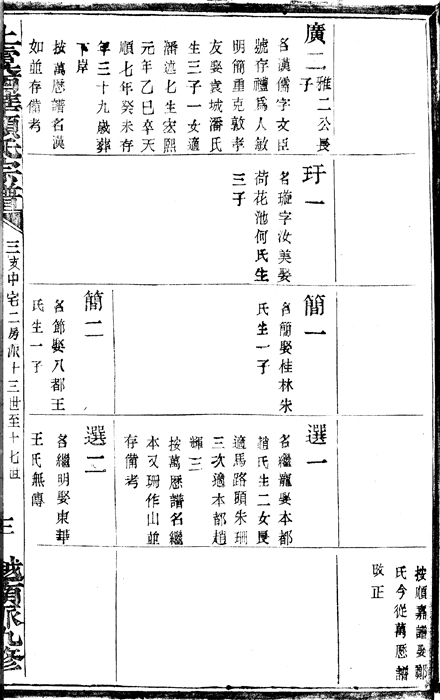 廣二 雅二公長子
名漢儒字文臣
號存禮爲人敏
明簡重克敦孝
友娶袁城潘氏
生三子一女適
潘逵七生宏熙
元年乙巳卒天
順七年癸未存
年三十九歲葬
下岸
按萬厯譜名漢
如並存備考
玗一
名璇字汝美娶
荷花池何氏生
三子
簡一
名簡娶桂林朱
氏生一子
簡二
名節娶八都王
氏生一子
選一
名繼寵娶本都
趙氏生二女長
適馬路頭朱珊
三次適本都趙
輝三
按萬厯譜名繼
本又珊作山並
存備考
選二
名繼明娶東華
王氏無傳
按順嘉譜娶鄭
氏今從萬厯譜
改正
顧氏宗譜
三支中宅二房派十三世至十七世
三